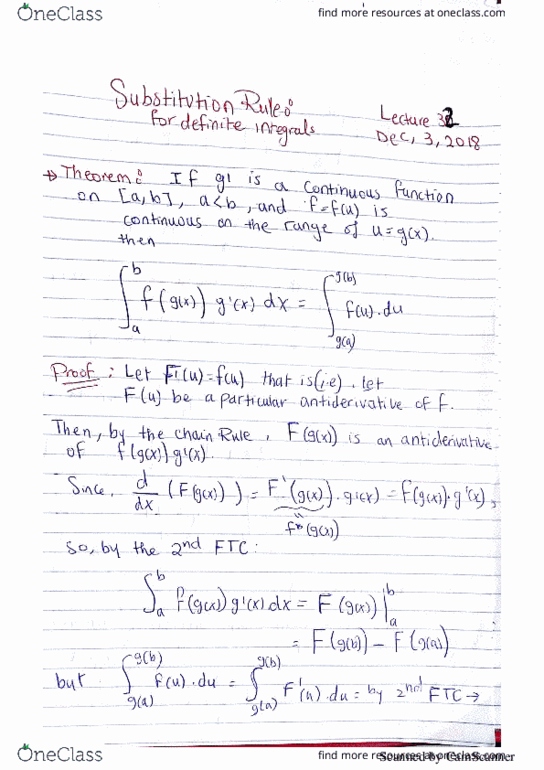 OneClass
find more resources at oneclass.com
Substitution Rule:
for definite integrals
Lecture 32
Dec, 3, 2018
→ Theorem: If g' is a continuous function
on [a,b], a<b, and f=f(u) is
continuous on the range of u=g(x).
then
∫_a^b f(g(x)) g'(x) dx = ∫_{g(a)}^{g(b)} f(u).du
Proof: Let F'(u)=f(u) that is(i.e), let
F(u) be a particular antiderivative of f.
Then, by the chain Rule, F(g(x)) is an antiderivative
of f(g(x)) g'(x).
Since, d/dx (F(g(x))) = F'(g(x)).g'(x) = f(g(x)).g'(x),
f(g(x))
So, by the 2nd FTC:
∫_a^b f(g(x)) g'(x) dx = F(g(x))|_a^b
= F(g(b)) - F(g(a))
but ∫_{g(a)}^{g(b)} f(u).du = ∫_{g(a)}^{g(b)} F'(u).du = by 2nd FTC →
OneClass
find more resources at oneclass.com
Scanned by CamScanner